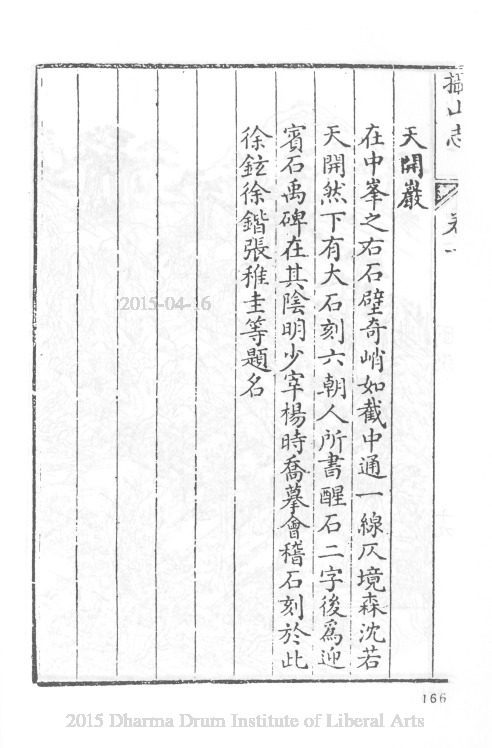 攝山志
卷一
天開巖
在中峯之右石壁奇峭如截中通一線仄境森沈若
天開然下有大石刻六朝人所書醒石二字後爲迎
賓石禹碑在其陰明少宰楊時喬摹會稽石刻於此
徐鉉徐鍇張稚圭等題名
2015-04-16
166
2015 Dharma Drum Institute of Liberal Arts